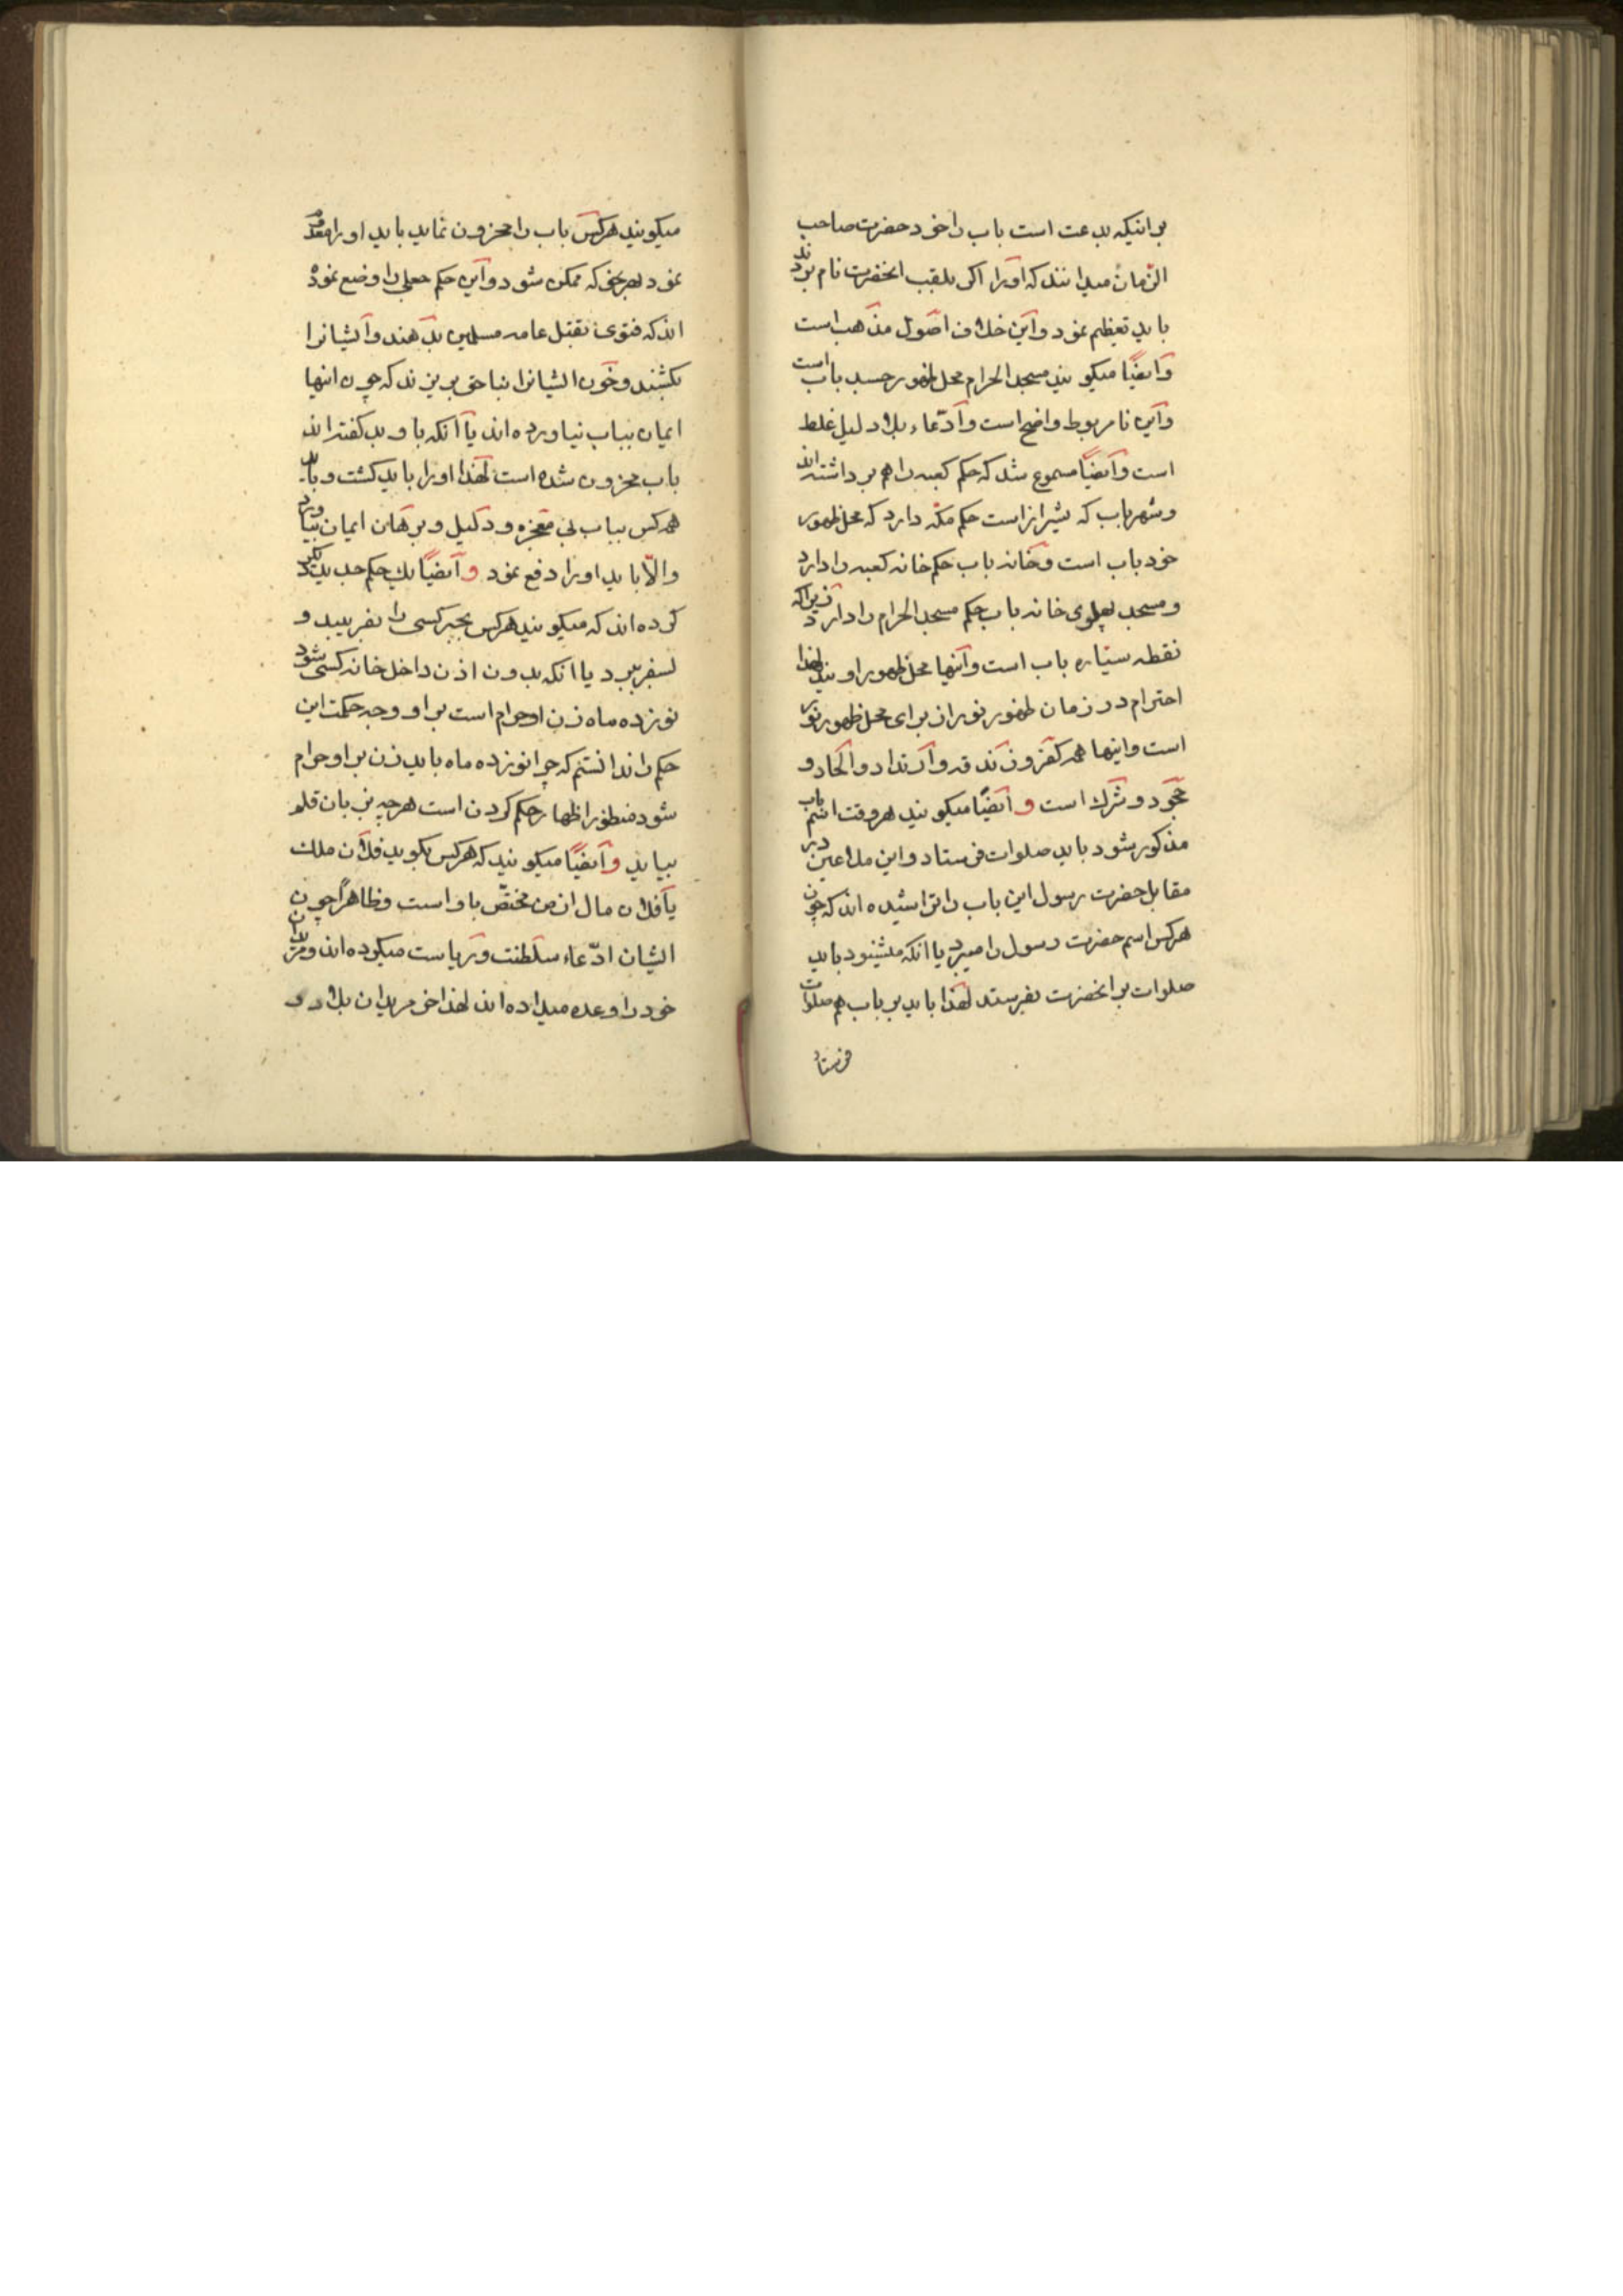 بر اینکه بدعت است باب را خود حضرت صاحب
الزمان میدانند که او را اگر بلقب انحضرت نام بردند
باید تعظیم نمود و این خلاف اصول مذهب است
و ایضاً میکویند مسجد الحرام محل ظهور جسد باب است
و این نامربوط واضح است و ادّعاء بلا دلیل غلط
است و ایضاً مسموع شد که حکم کعبه را هم برداشته اند
و شهر باب که شیراز است حکم مکّه دارد که محل ظهور
خود باب است و خانه باب حکم خانه کعبه را دارد
و مسجد پهلوی خانه باب حکم مسجد الحرام را دارد زیرا که
نقطه ستاره باب است و اینها محل ظهور اویند لهذا
احترام در زمان ظهور نوران برای محل ظهور نور
است و اینها همه کفر و زندقه و ارتداد و الحاد و
جحود و شرک است و ایضاً میکویند هر وقت اسم باب
مذکور شود باید صلوات فرستاد و این ملاعین در
مقابل حضرت رسول این باب را تراشیده اند که چون
هرکس اسم حضرت رسول را میبرد یا انکه میشنود باید
صلوات بر انحضرت بفرستد لهذا باید بر باب هم صلوات
فرستاد
میکویند هرکس باب را محزون نماید باید او را
نمود بهر نحوی که ممکن شود و این حکم جعلی را وضع نموده
اند که فتوی بقتل عامه مسلمین بدهند و ایشانرا
بکشند و خون ایشانرا بناحق بریزند که چون اینها
ایمان بباب نیاورده اند یا انکه باو بد کفته اند
باب محزون شده است لهذا او را باید کشت و باید
همه کس بباب بی معجزه و دلیل و برهان ایمان بیاورد
و الّا باید او را دفع نمود و ایضاً یک حکم جدید دیگر
کرده اند که میکویند هرکس بجبر کسی را بفریبد و
بسفر ببرد یا انکه بدون اذن داخل خانه کسی شود
نوزده ماه زن او حرام است بر او و وجه حکمت این
حکم را ندانستم که چرا نوزده ماه باید زن بر او حرام
شود منظور اظهار حکم کردن است هرچه بزبان قلم
بیاید و ایضاً میکویند که هرکس بکوید فلان ملک
یا فلان مال از من مختصّ باو است و ظاهراً چون
ایشان ادّعاء سلطنت و ریاست میکرده اند و مریدان
خود را وعده میداده اند لهذا اخر مریدان بلاد و